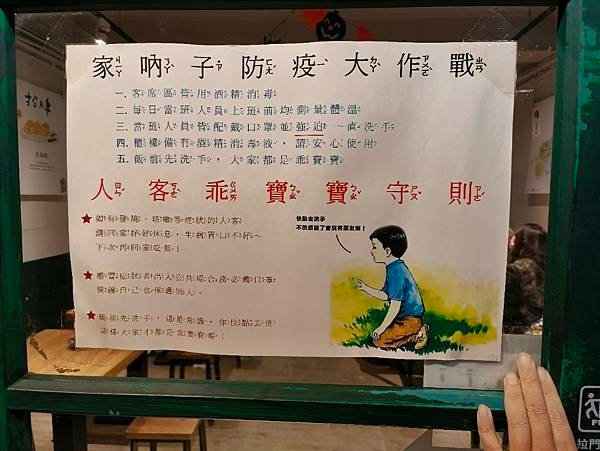 家吶子防疫大作戰
一.客席區皆用酒精消毒
二.每日當班人員上班前均測量體溫
三.當班人員皆配戴口罩並強迫一直洗手
四.櫃檯備有酒精消毒液，請安心使用
五.飯前先洗手，大家都是乖寶寶
人客乖寶寶守則
快點去洗手
不然感冒了會沒有朋友喔！
★如有發燒、咳嗽等症狀的人客
請回家好好休息，生病胃口不好~
下次再回來吃飯！
★感冒症狀者出入公共場合務必戴口罩
保護自己也保護別人。
★飯前先洗手，這是常識，你快點去洗
這樣大家才都是乖寶寶喔！
拉門